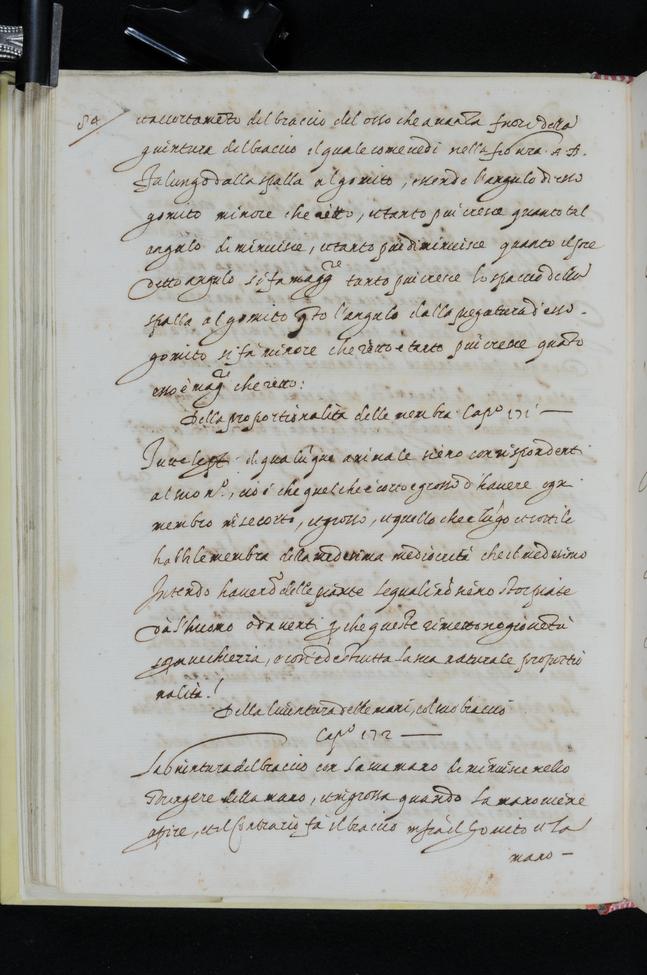 54
et accortamēto del braccio del osso che auanza fuori della
giuntura del braccio il quale come uedi nella figura A B.
Fa lungo dalla spalla al gomito, essendo l'angulo di esso
gomito minore che retto, et tanto piu cresce quanto tal
angulo diminuisce, et tanto piu diminuisce quanto il pre
detto angulo si fa maggre tanto piu cresce lo spaccio della
spalla al gomito qto l'angulo della piegatura d'esso
gomito si fa minore che retto e tanto piu cresce quāto
esso è magre che retto:
Della proportionalità delle membra Capo 171 —
Tutte le pti di qualūque animale sieno corrispondenti
al suo , cioè che quel che è corto e grosso d'hauere ogni
membro in se corto, et grosso, et quello che è lūgo et sottile
habbi le membra della medesima mediocrità che il medesimo
Intendo hauer delle piante le quali nō sieno storpiate
dà l'huomo ò da uenti p che queste rimettono giouētù
sopra uecchieria, o così è destrutta la sua naturale proportio
nalità!
Della Giuntura delle mani, col suo braccio
Capo 172 —
La Giuntura del braccio con la sua mano diminuisce nello
stringere della mano, et ingrossa quando la mano uiene
aprire, et il Contrario fa il braccio infra il Gomito et la
mano —